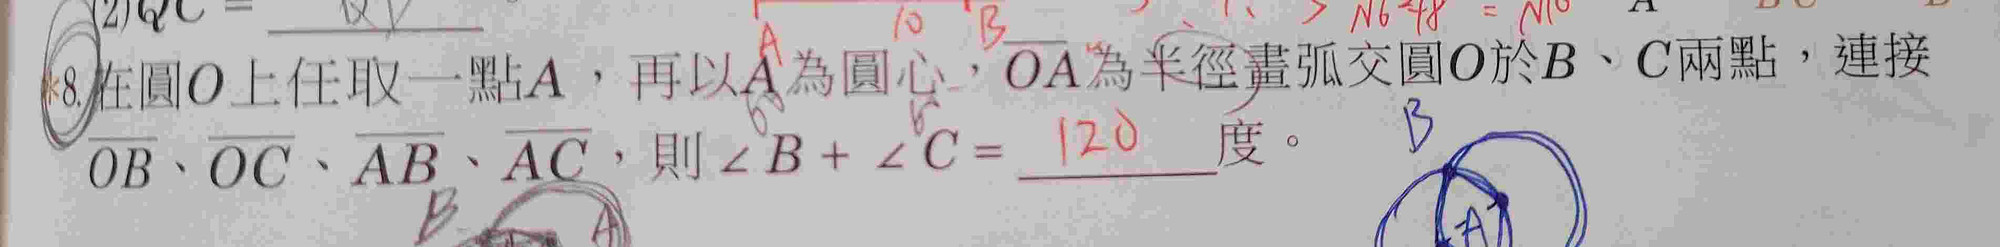 (2)QC =
A 10 B
*8. 在圓O上任取一點A，再以A為圓心，OA為半徑畫弧交圓O於B、C兩點，連接
OB、OC、AB、AC，則∠B + ∠C = 120 度。
B
B A
A